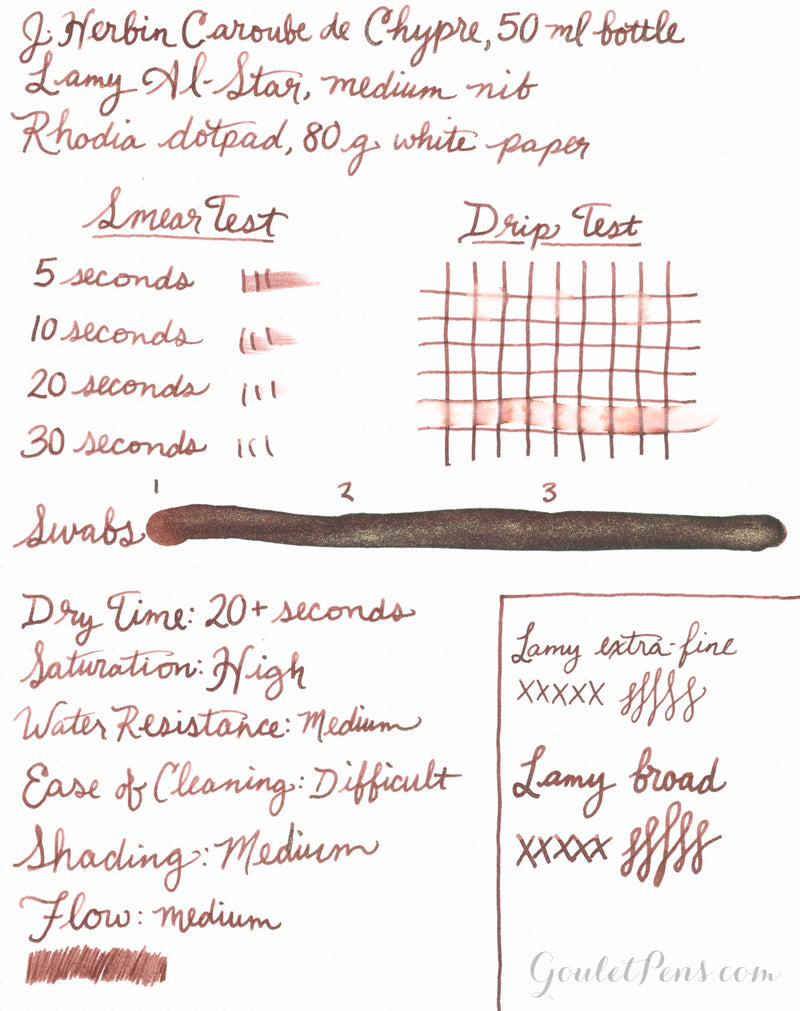 J. Herbin Caroube de Chypre, 50 ml bottle
Lamy Al-Star, medium nib
Rhodia dotpad, 80 g white paper
Smear Test
5 seconds
10 seconds
20 seconds
30 seconds
Drip Test
1 2 3
Swabs
Dry Time: 20+ seconds
Saturation: High
Water Resistance: Medium
Ease of Cleaning: Difficult
Shading: Medium
Flow: medium
Lamy extra-fine
xxxxx
Lamy broad
xxxxx
GouletPens.com